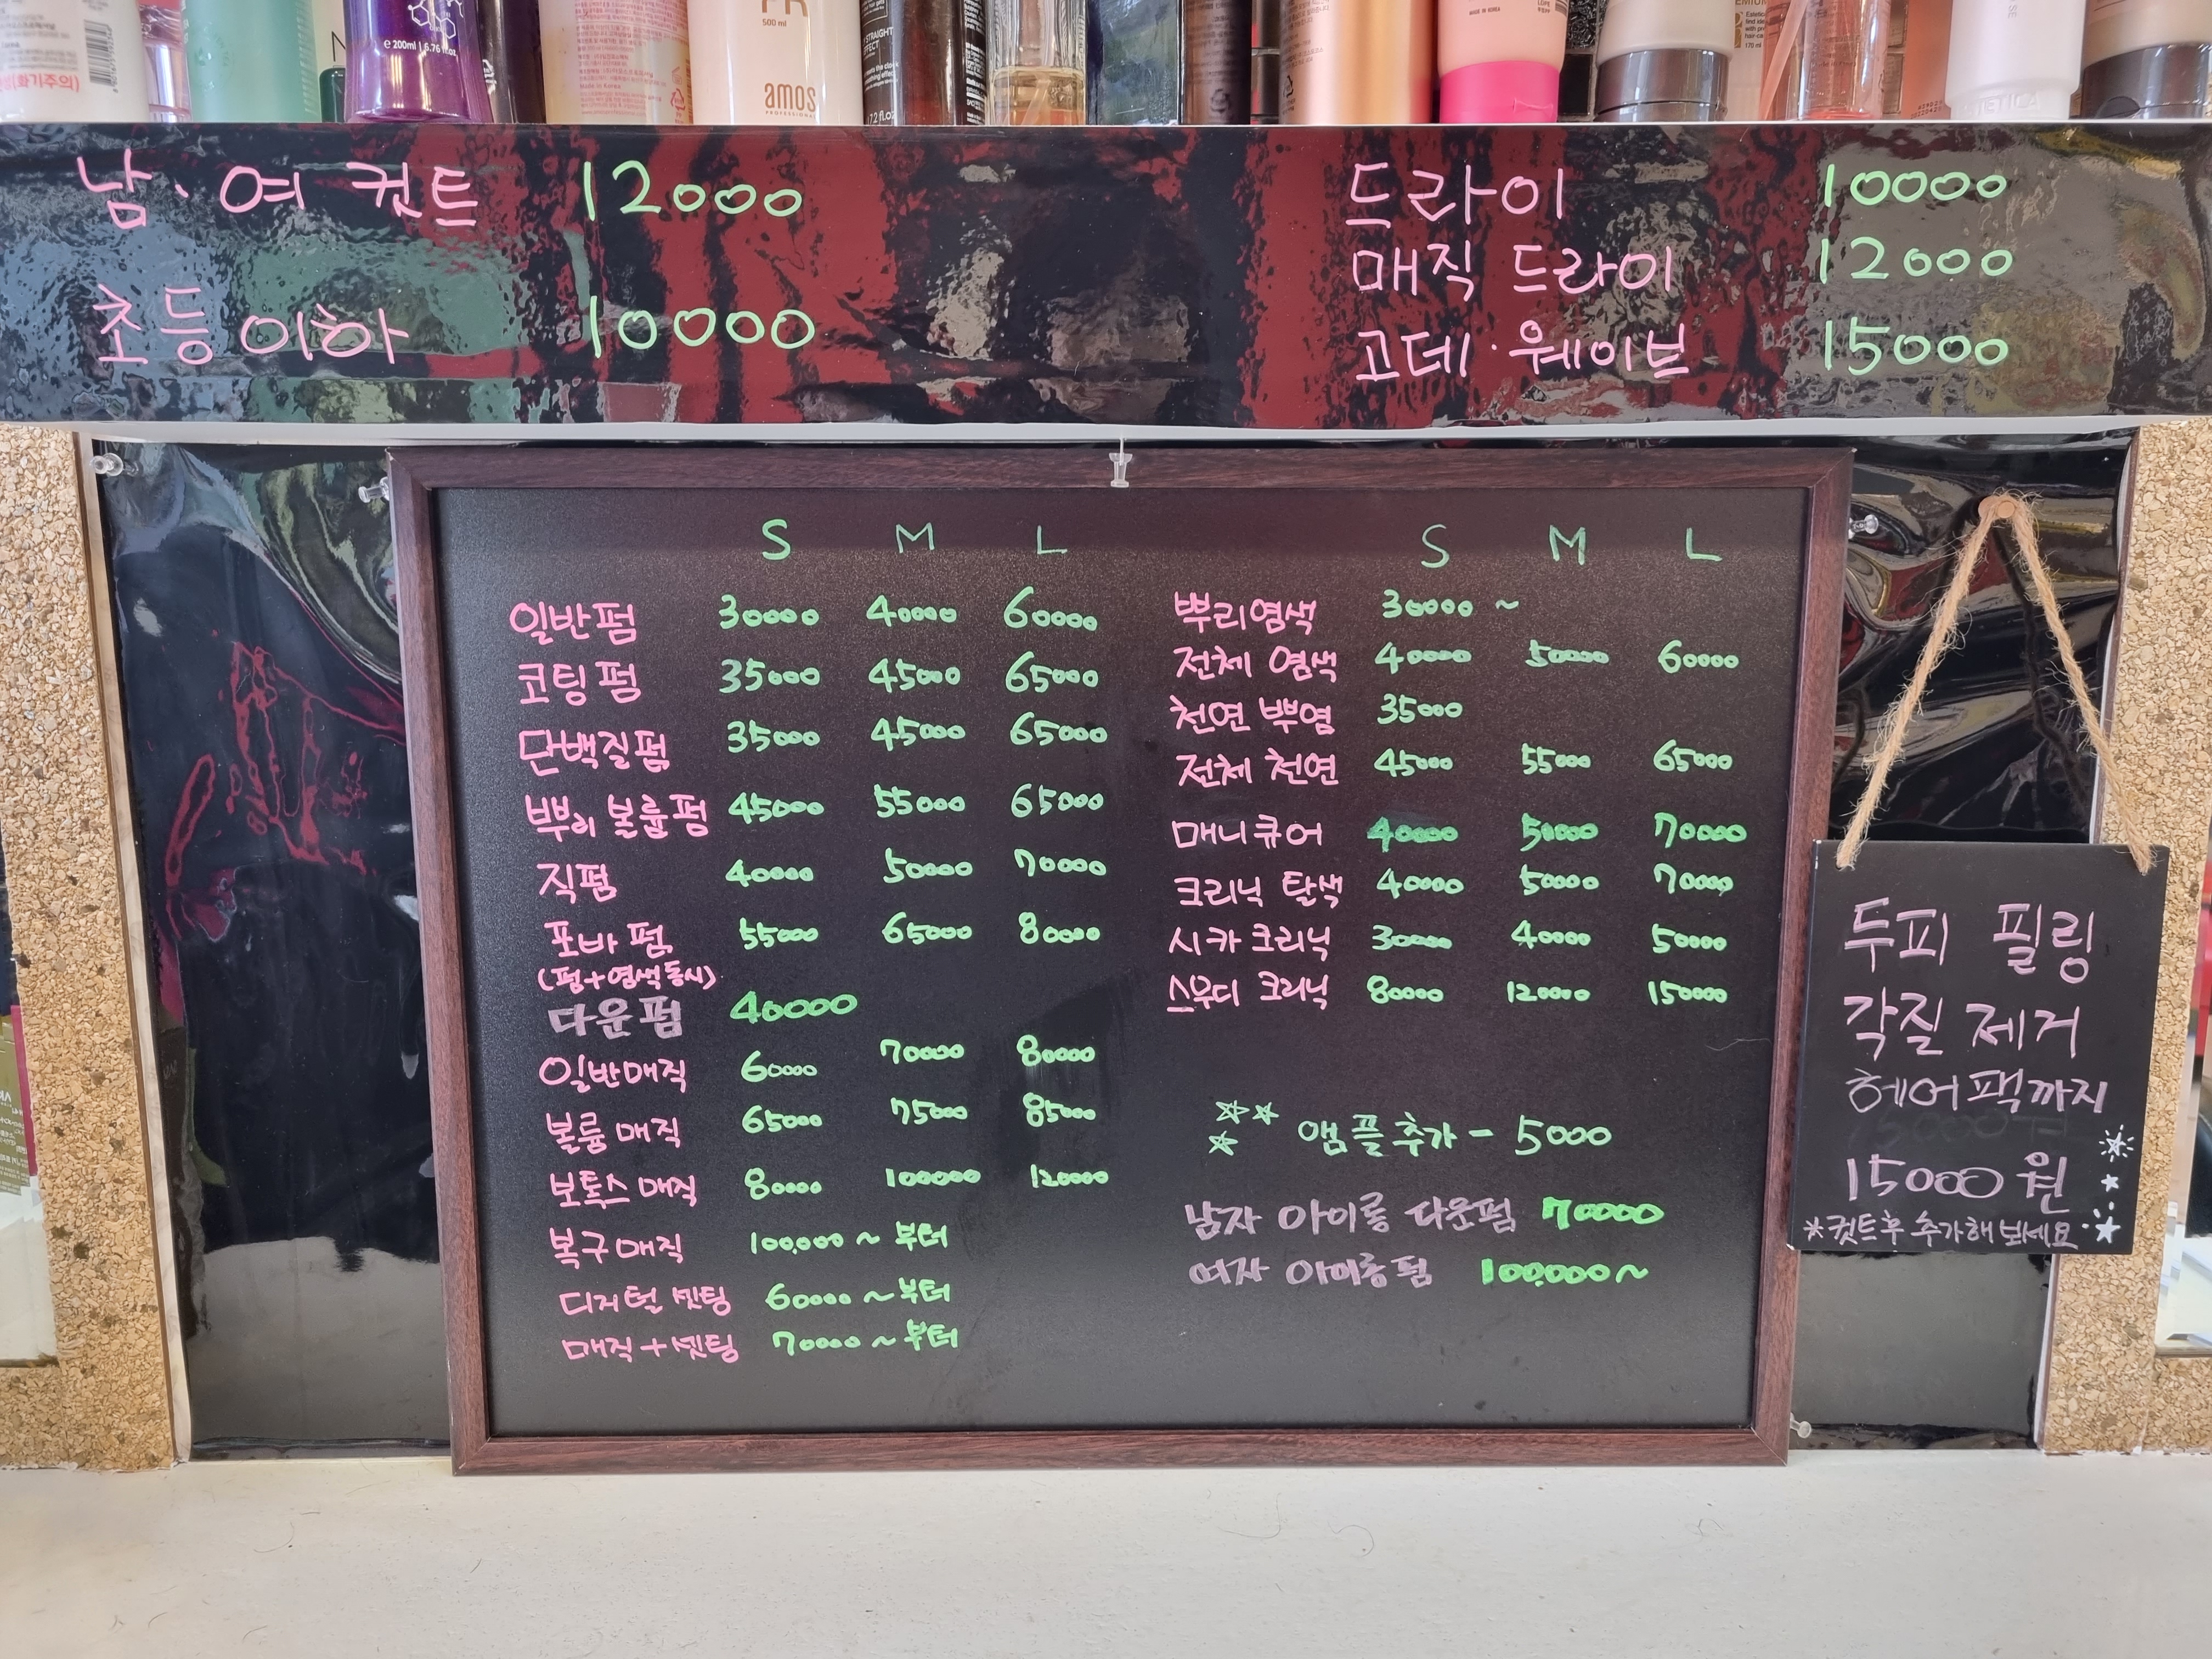 화기주의)
℮ 200ml | 6.76 fl.oz.
500 ml
amos
PROFESSIONAL
STRAIGHT
EFFECT
MADE IN KOREA
남·여 컷트 12000
초등이하 10000
드라이 10000
매직 드라이 12000
고데·웨이브 15000
S M L
일반펌 30000 40000 60000
코팅펌 35000 45000 65000
단백질펌 35000 45000 65000
뿌리볼륨펌 45000 55000 65000
직펌 40000 50000 70000
포바펌 55000 65000 80000
(펌+염색동시)
다운펌 40000
일반매직 60000 70000 80000
볼륨매직 65000 75000 85000
보톡스매직 80000 100000 120000
복구매직 100,000 ~ 부터
디지털 셋팅 60000 ~ 부터
매직+셋팅 70000 ~ 부터
S M L
뿌리염색 30000 ~
전체 염색 40000 50000 60000
천연 뿌염 35000
전체 천연 45000 55000 65000
매니큐어 40000 50000 70000
크리닉 탈색 40000 50000 70000
시카 크리닉 30000 40000 50000
스무디 크리닉 80000 120000 150000
앰플추가 - 5000
남자 아이롱 다운펌 70000
여자 아이롱펌 100,000 ~
두피 필링
각질 제거
헤어팩까지
15000원
*컷트후 추가해보세요